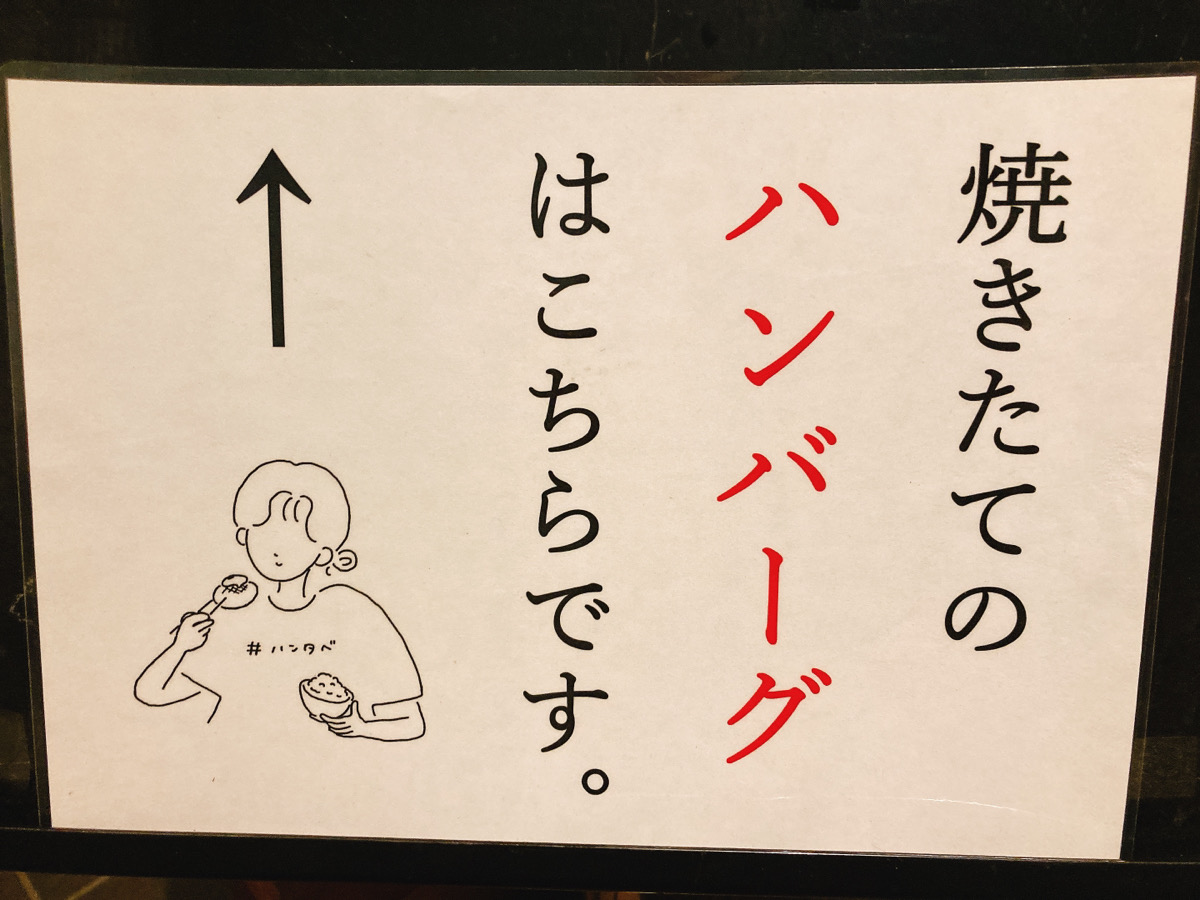 焼きたての
ハンバーグ
はこちらです。
↑
#ハンタベ